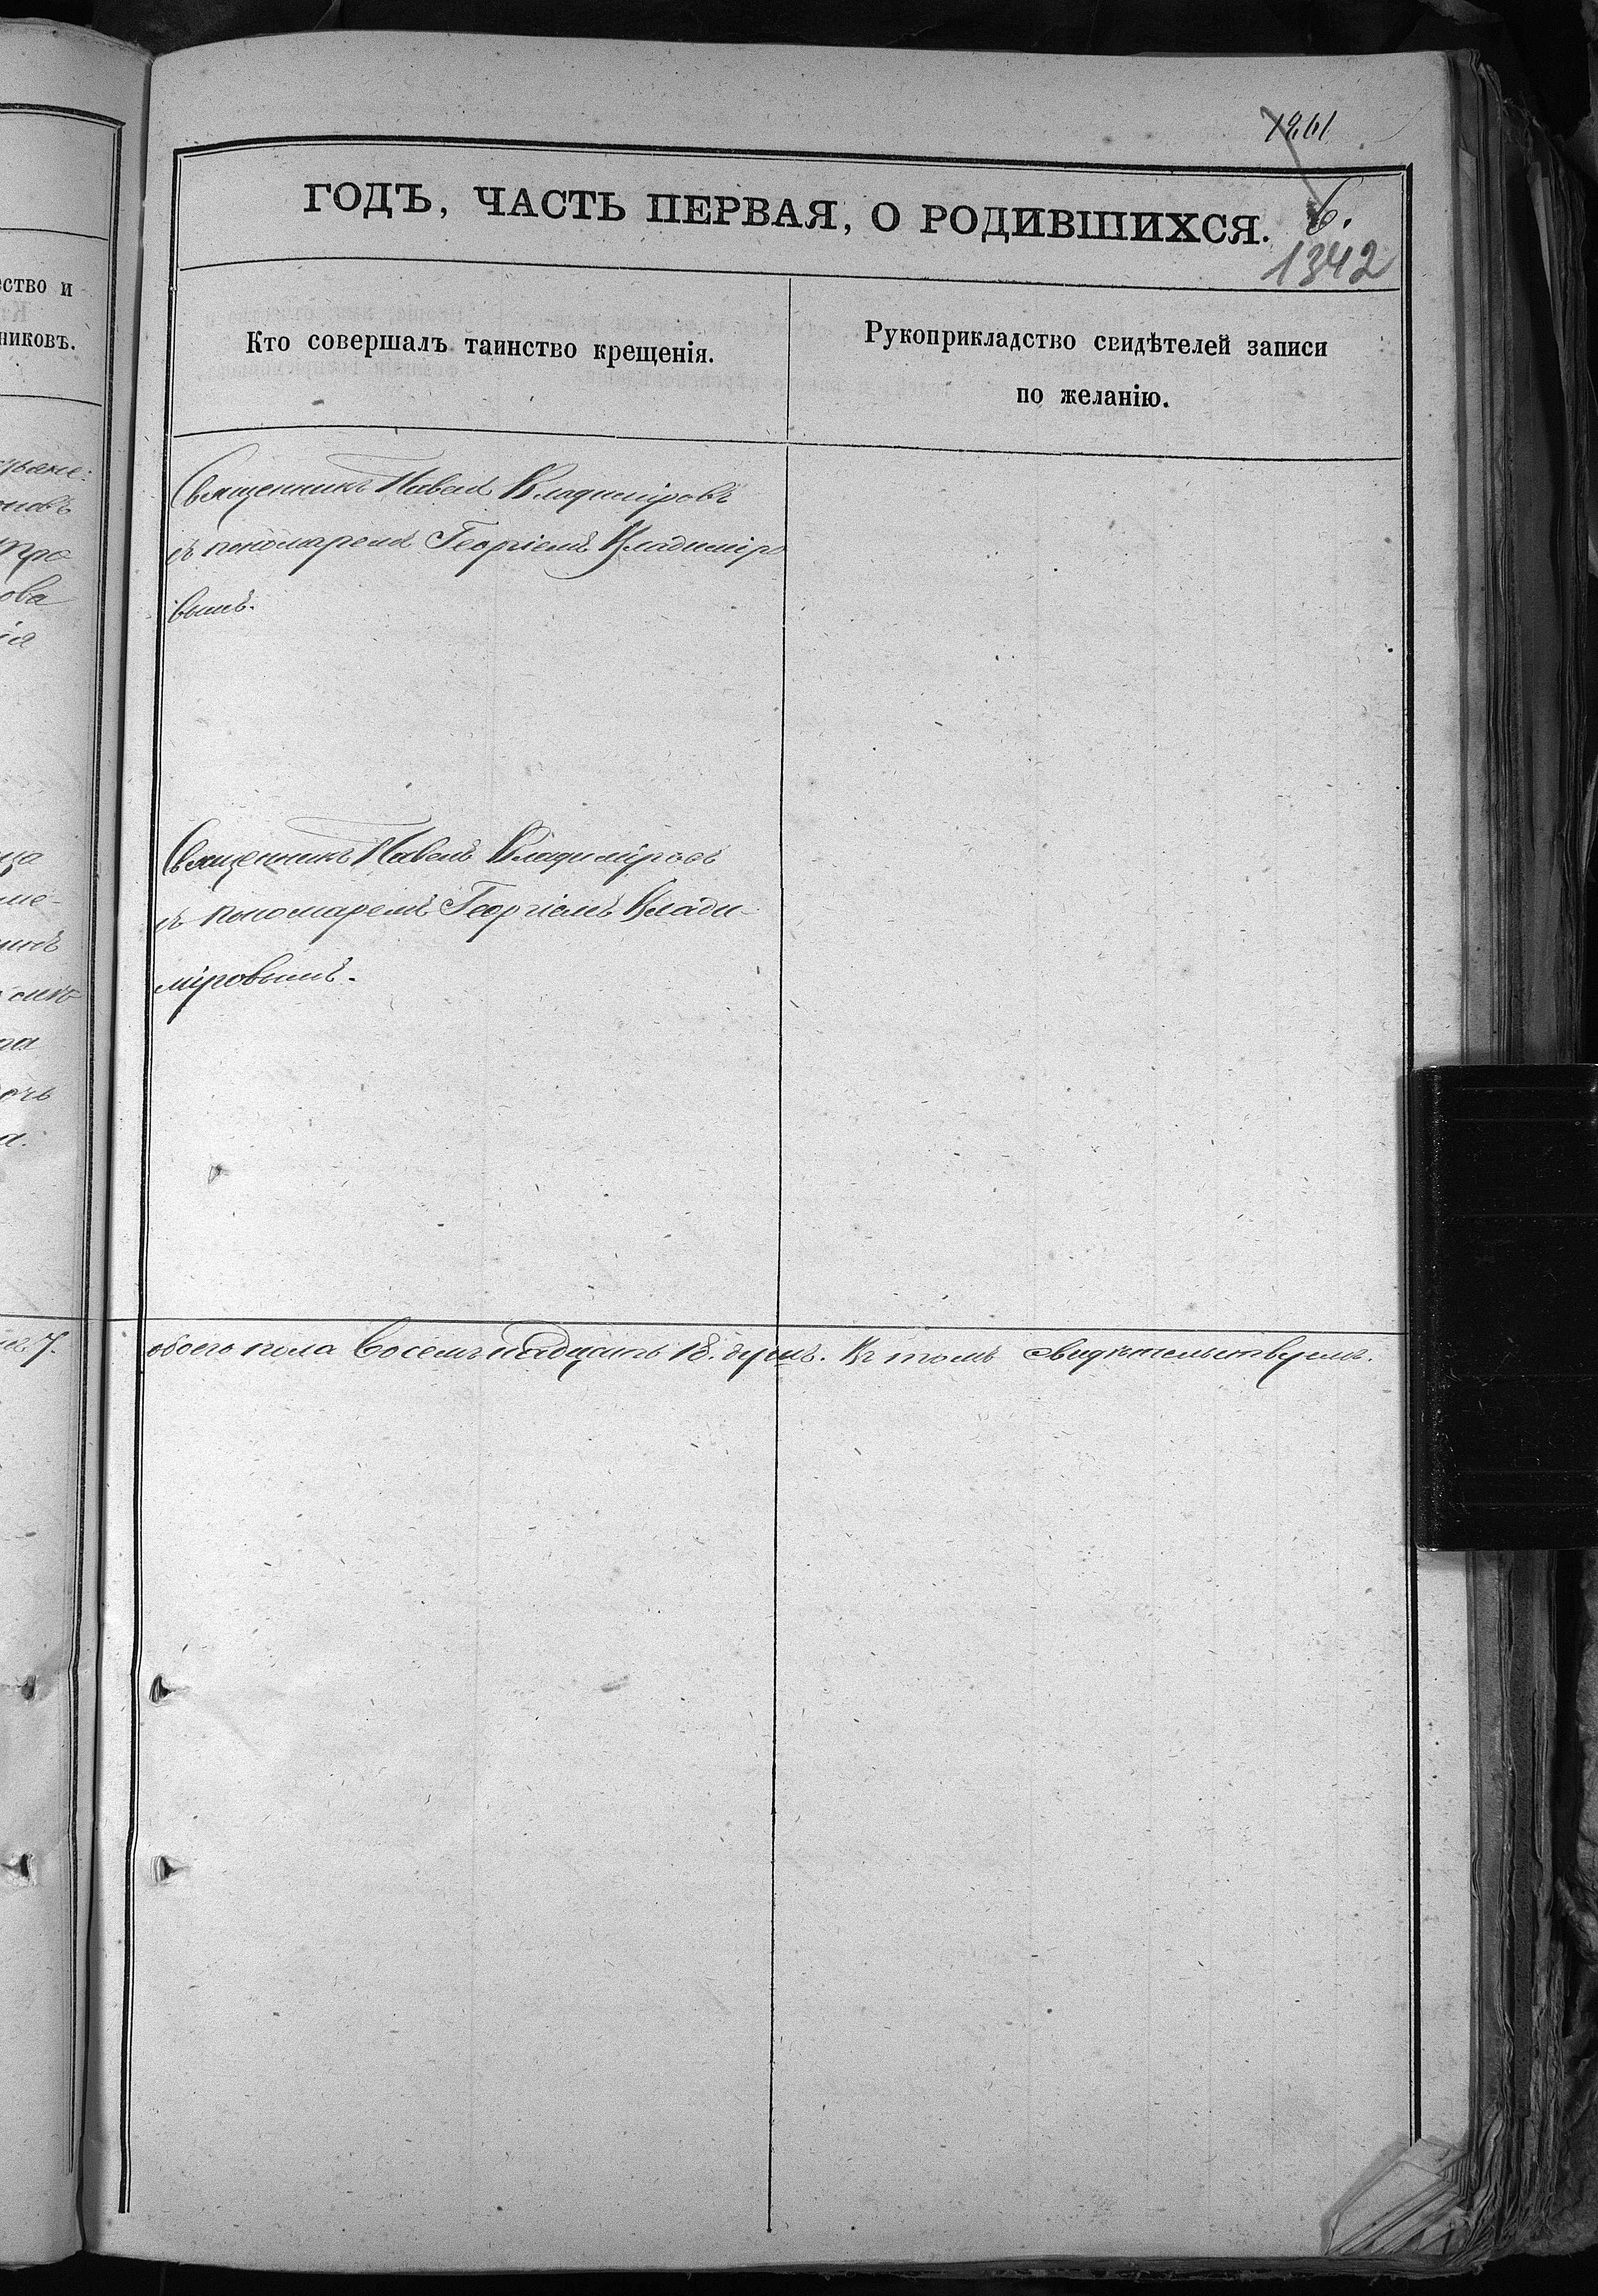 1261
ГОДЪ, ЧАСТЬ ПЕРВАЯ, О РОДИВШИХСЯ.
6.
1342
ство и
никовъ.
Кто совершалъ таинство крещенія.
Рукоприкладство свидѣтелей записи
по желанію.
Священникъ Павелъ Владиміровъ
съ пономаремъ Георгіемъ Владиміро
вымъ.
Священникъ Павелъ Владиміровъ
съ пономаремъ Георгіемъ Влади-
міровымъ.
ова
ія
на
очь
а.
7.
обоего пола восемьнадцать 18. душъ. Въ томъ свидѣтельствуемъ.